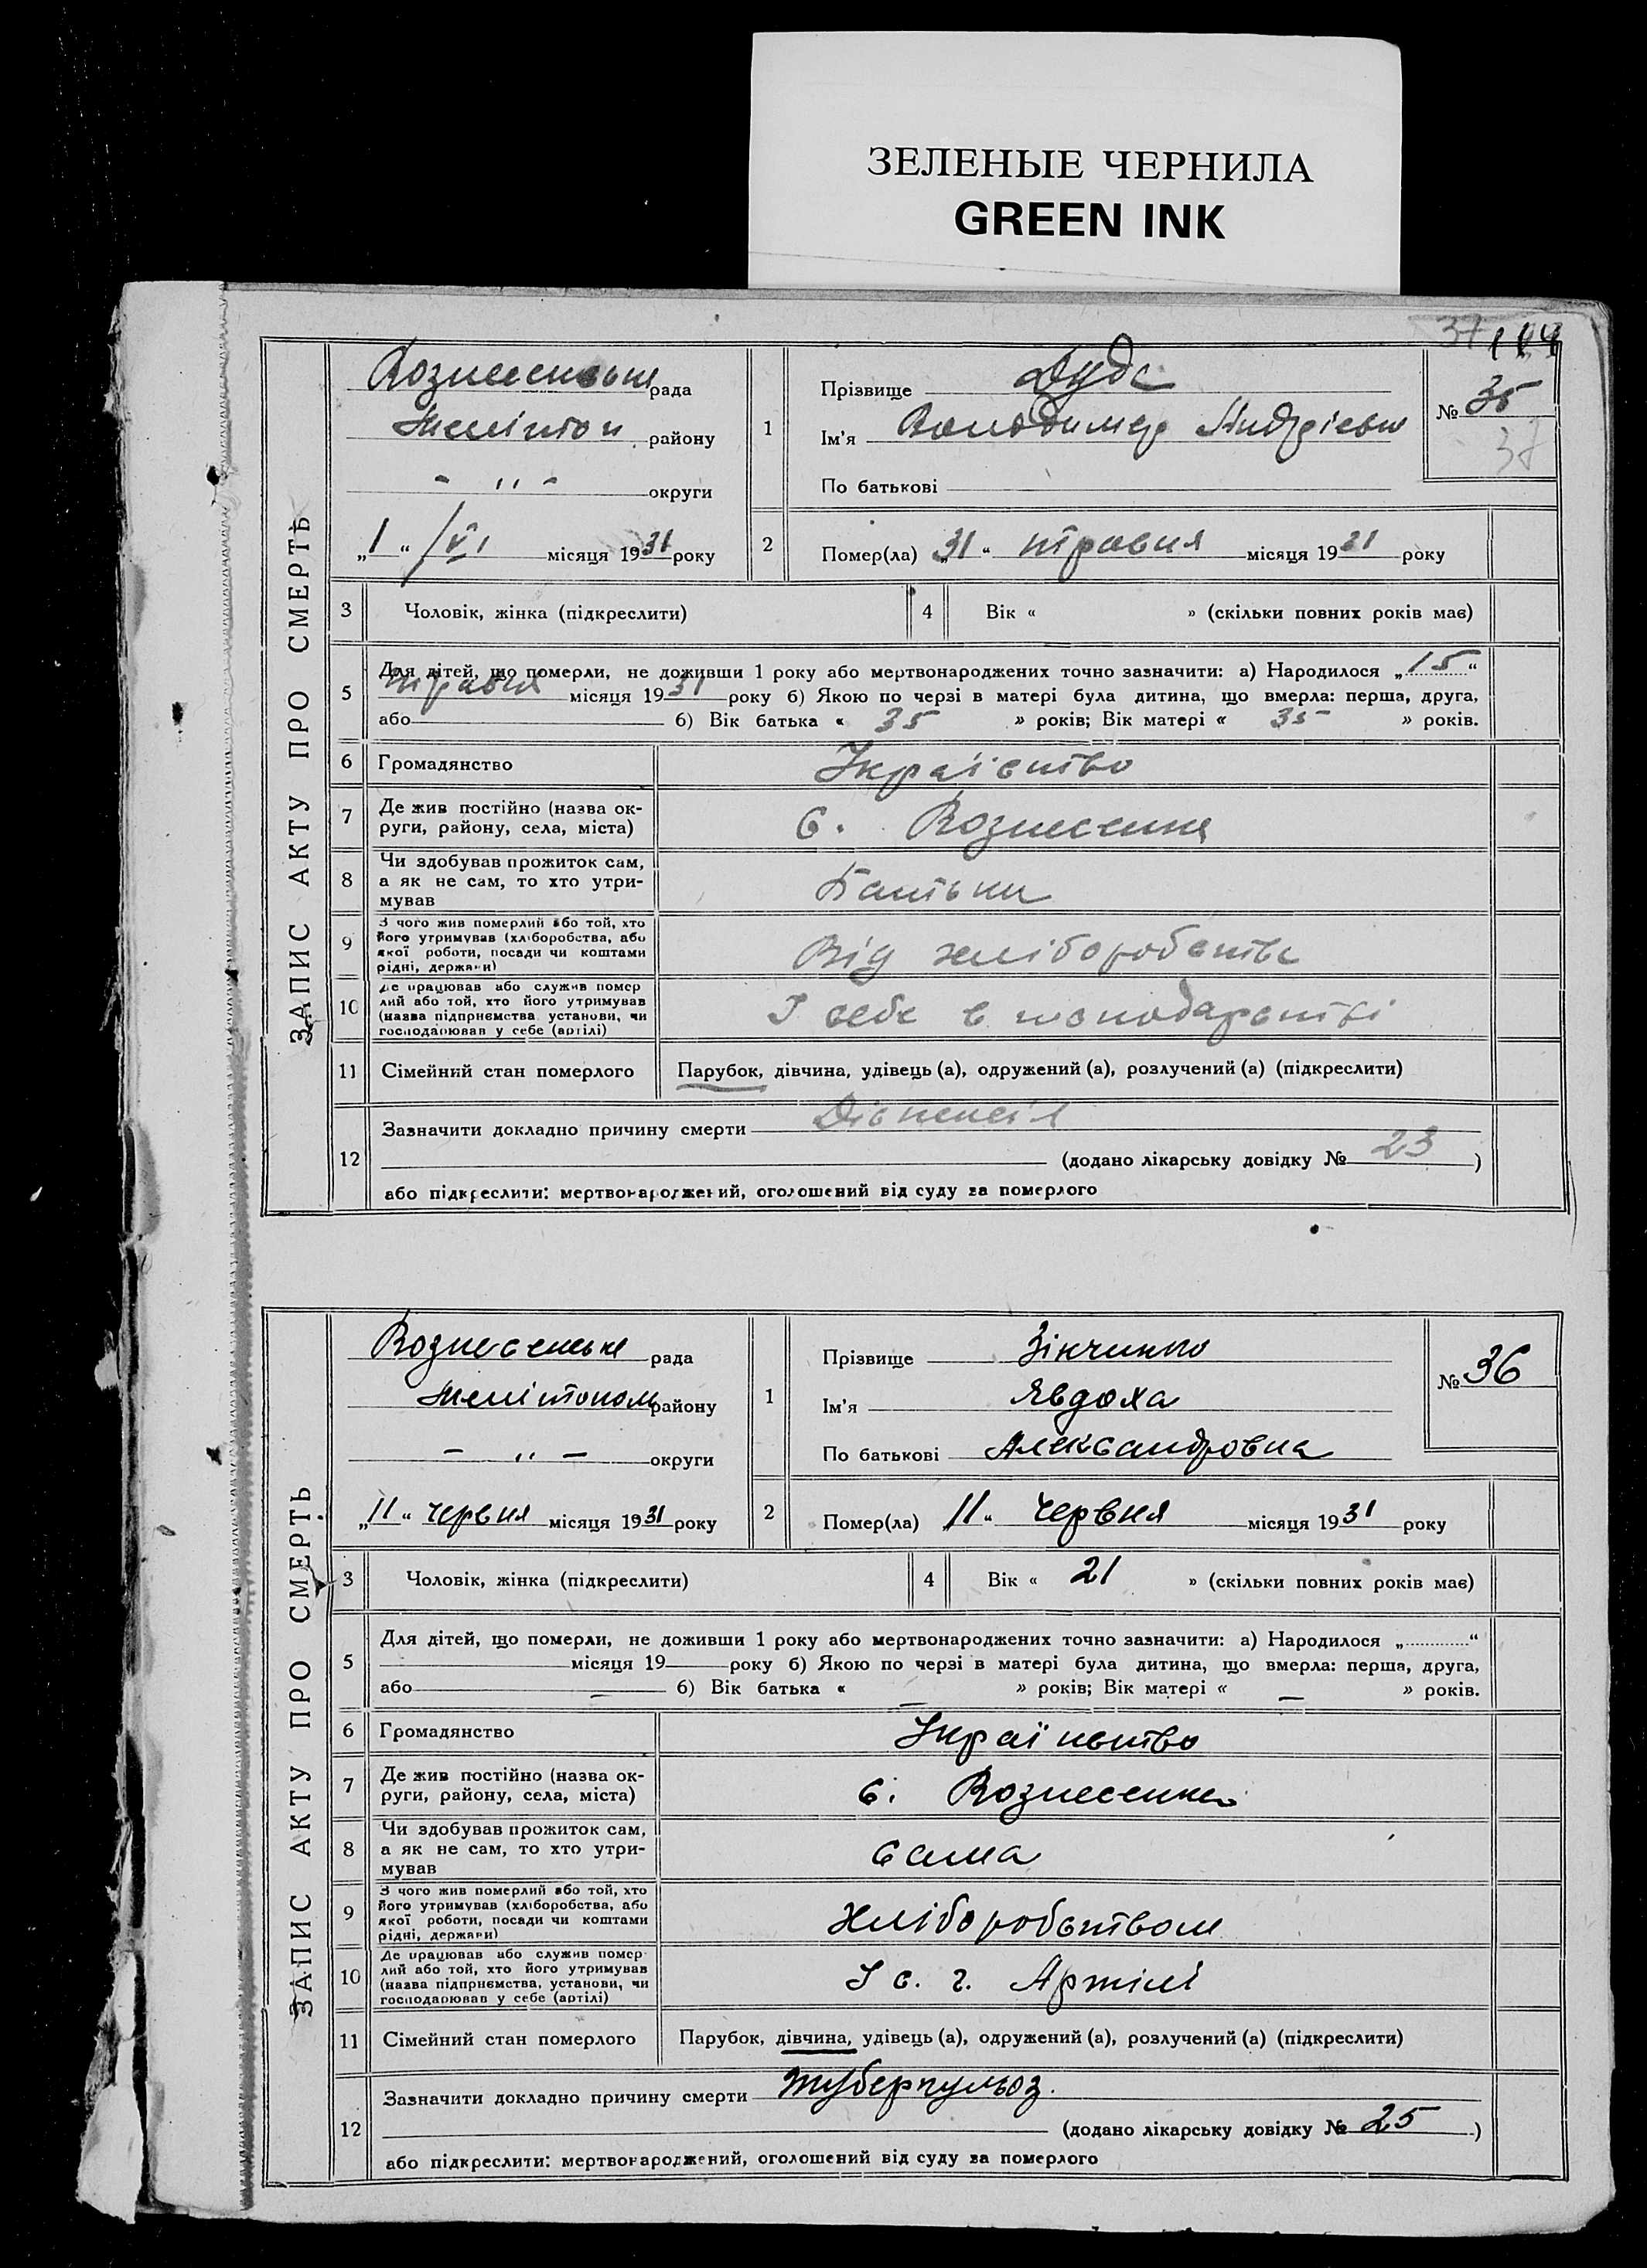 ЗЕЛЕНЫЕ ЧЕРНИЛА
GREEN INK
37 114
ЗАПИС АКТУ ПРО СМЕРТЬ
Вознесенська рада
Меліпоп. району
- " - округи
„1“ /VI місяця 1931 року
1
Прізвище Дуда
Ім'я Володимер Андрієвич
По батькові
№ 35
37
2
Помер(ла) „31“ травня місяця 1931 року
3 Чоловік, жінка (підкреслити)
4 Вік « » (скільки повних років має)
5
Для дітей, що померли, не доживши 1 року або мертвонароджених точно зазначити: а) Народилося „15“
травня місяця 1931 року б) Якою по черзі в матері була дитина, що вмерла: перша, друга,
або б) Вік батька « 35 » років; Вік матері « 35 » років.
6 Громадянство
7 Де жив постійно (назва ок-
руги, району, села, міста)
с. Вознесенка
8 Чи здобував прожиток сам,
а як не сам, то хто утри-
мував
Батьки
9 З чого жив померлий або той, хто
його утримував (хліборобства, або
якої роботи, посади чи коштами
рідні, держави)
Від хліборобства
10 Де працював або служив помер
лий або той, хто його утримував
(назва підприємства установи, чи
господарював у себе (артілі)
У себе в господарстві
11 Сімейний стан померлого
Парубок, дівчина, удівець (а), одружений (а), розлучений (а) (підкреслити)
12
Зазначити докладно причину смерти Діспепсія
(додано лікарську довідку № 23 )
або підкреслити: мертвонароджений, оголошений від суду за померлого
ЗАПИС АКТУ ПРО СМЕРТЬ
Вознесенська рада
Мелітопол району
- " - округи
„11“ червня місяця 1931 року
1
Прізвище Зінченко
Ім'я Явдоха
По батькові Александровна
№ 36
2
Помер(ла) „11“ червня місяця 1931 року
3 Чоловік, жінка (підкреслити)
4 Вік « 21 » (скільки повних років має)
5
Для дітей, що померли, не доживши 1 року або мертвонароджених точно зазначити: а) Народилося „ “
місяця 19 року б) Якою по черзі в матері була дитина, що вмерла: перша, друга,
або — б) Вік батька « — » років; Вік матері « — » років.
6 Громадянство
7 Де жив постійно (назва ок-
руги, району, села, міста)
с. Вознесенка
8 Чи здобував прожиток сам,
а як не сам, то хто утри-
мував
сама
9 З чого жив померлий або той, хто
його утримував (хліборобства, або
якої роботи, посади чи коштами
рідні, держави)
Хліборобством
10 Де працював або служив помер
лий або той, хто його утримував
(назва підприємства, установи, чи
господарював у себе (артілі)
У с. г. Артілі
11 Сімейний стан померлого
Парубок, дівчина, удівець (а), одружений (а), розлучений (а) (підкреслити)
12
Зазначити докладно причину смерти туберкульоз.
(додано лікарську довідку № 25 )
або підкреслити: мертвонароджений, оголошений від суду за померлого